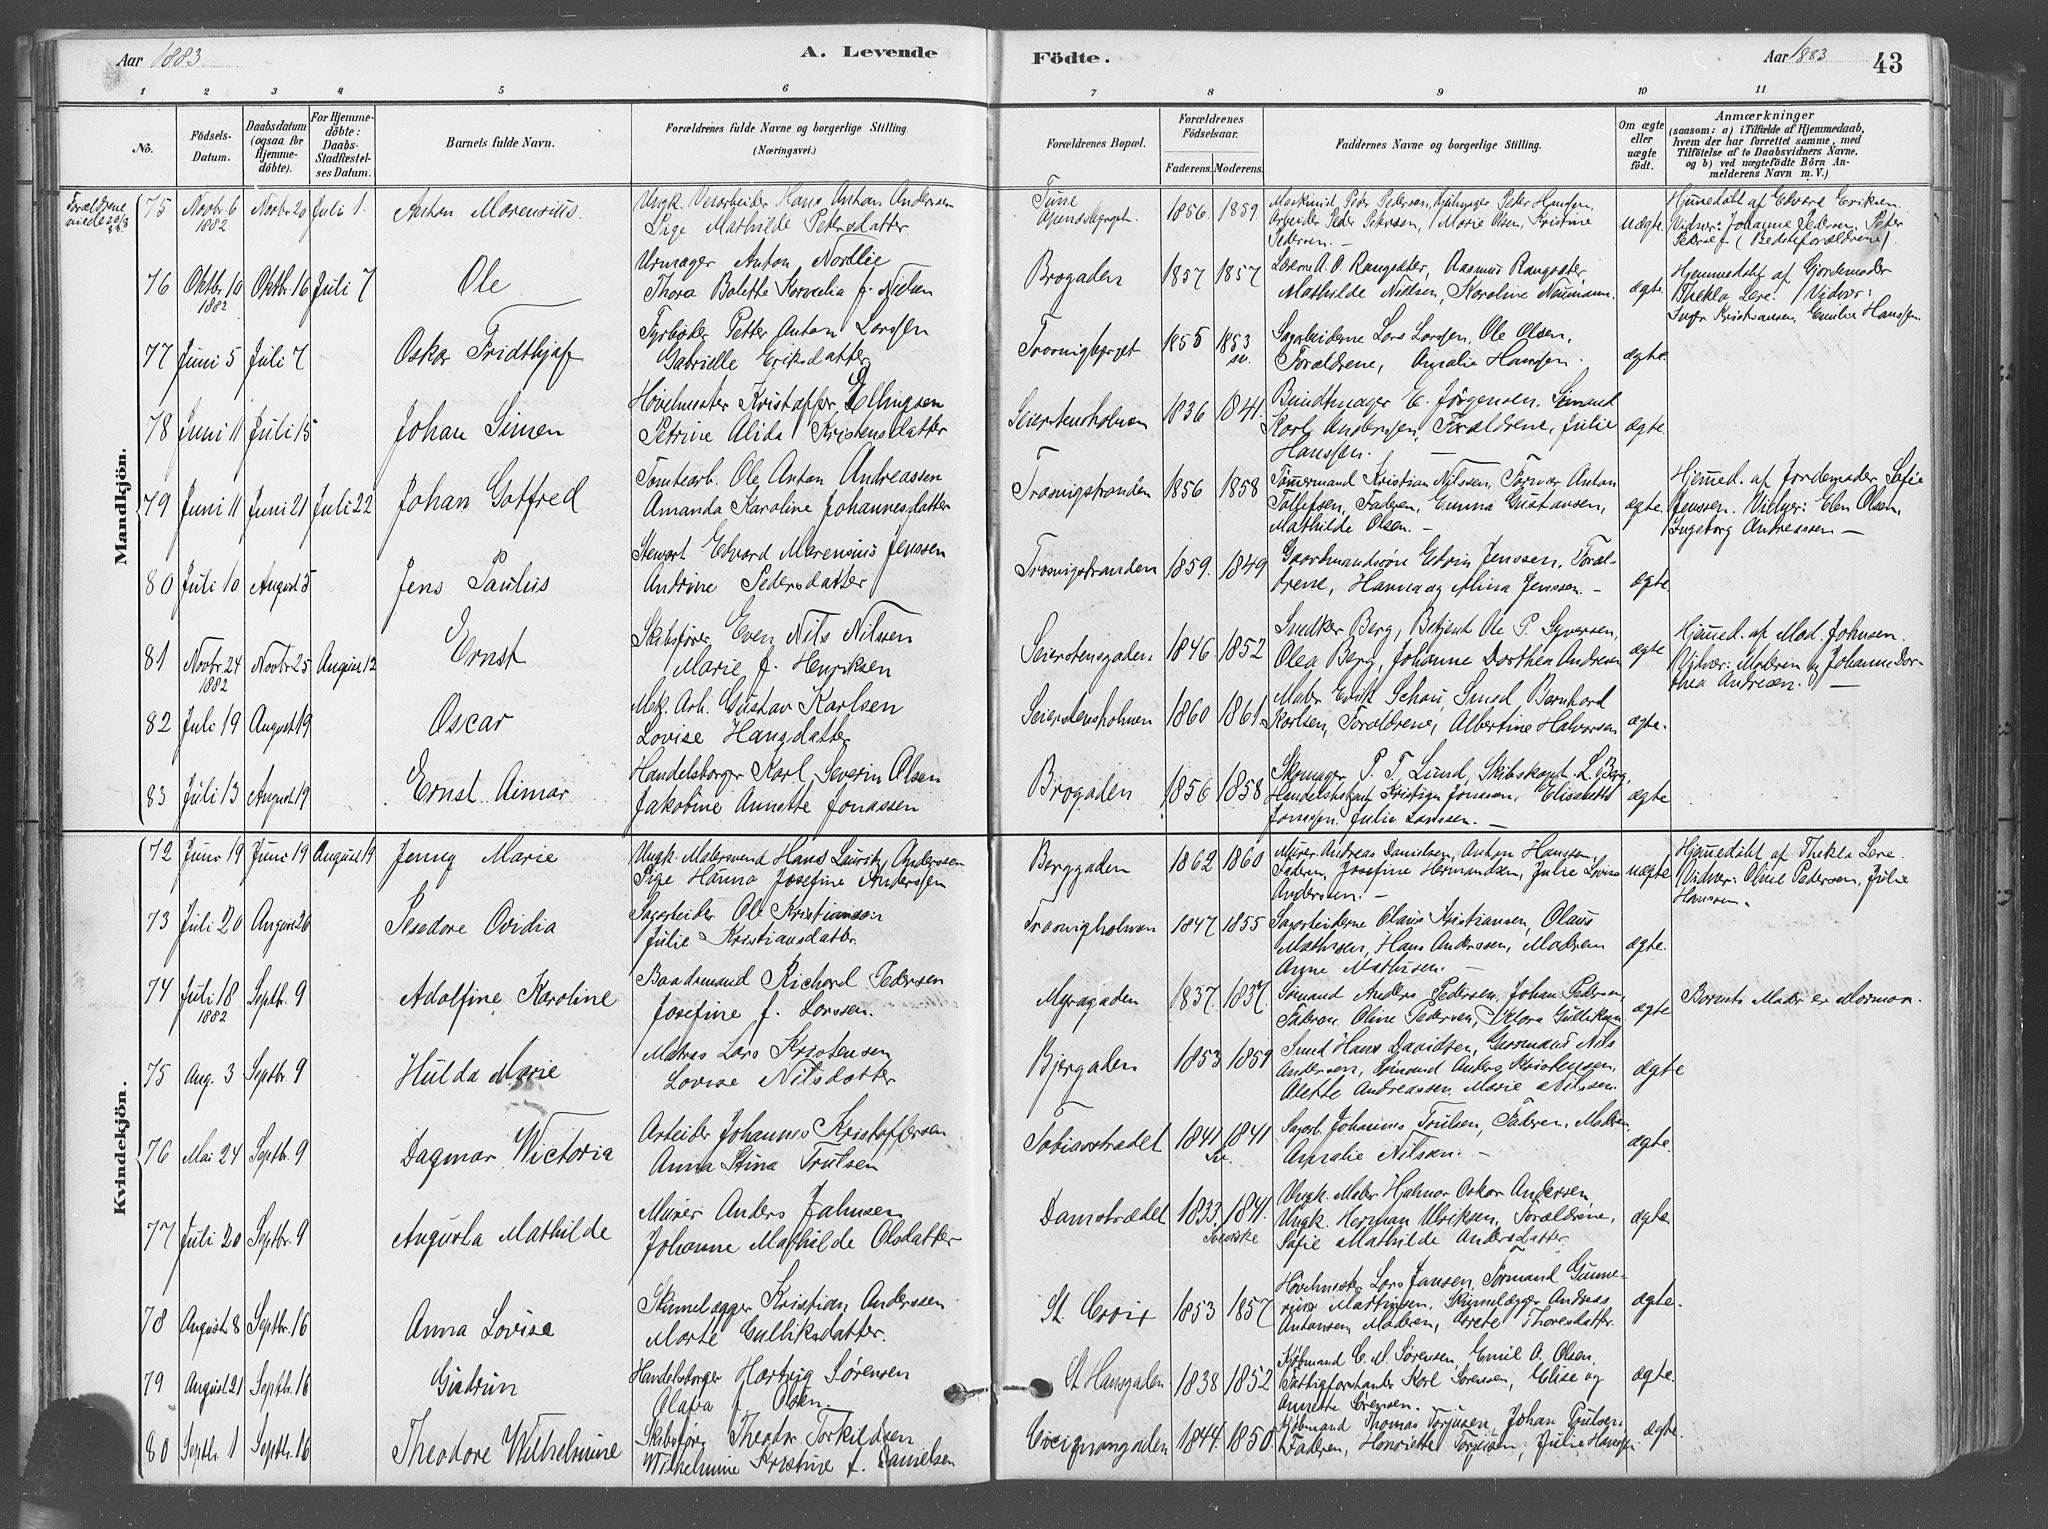 Aar 1883. A. Levende Födte. Aar 1883 43
1 2 3 4 5 6 7 8 9 10 11
No. Födsels-Datum. Daabsdatum (ogsaa for Hjemmedöbte). For Hjemmedöbte: Daabs-Stadfæstelses Datum. Barnets fulde Navn. Forældrenes fulde Navne og borgerlige Stilling. (Næringsvei.) Forældrenes Bopæl. Forældrenes Födselsaar. Faderens. Moderens. Faddernes Navne og borgerlige Stilling. Om ægte eller uægte födt. Anmærkninger (saasom: a) i Tilfælde af Hjemmedaab, hvem der har forrettet samme, med Tilföielse af to Daabsvidners Navne, og b) ved uægtefödte Börn Anmelderens Navn m. V.)
Mandkjön.
75 Novbr. 6 1882 Novbr 20 Juli 1. Anton Marensius. Ungk. Hans Anton Andersen
Pige Mathilde Petersdatter. Tune 1856. 1859. uægte
76 Oktbr 10 1882 Oktbr 16 Juli 7 Ole Urmager Anton Nordlie
Thora Bolette Kornelia f. Nielsen Brogaden 1857 1857 Mathilde Nielsen, Karoline Naumann. ægte. Hjemmedøbt af Gjordemoder
Thekla Lere. Vidner:
Kristiansen, Emilie Hanssen
77 Juni 5 Juli 7 Oskar Fridthjof Fyrbøder Petter Anton Larssen
Gabrielle Eriksdatter 1855 1853 sv. Sagarbeiderne Lars Larssen, Ole Olsen,
Forældrene, Amalie Hanssen. ægte.
78 Juni 11 Juli 15 Johan Simen Høvelmester Kristoffer Ellingsen
Petrine Alida Kristensdatter Seierstensholmen 1836 1841. Bundtmager E. Jörgensen, Sömand
Karl Anderssen, Forældrene, Julie
Hanssen. ægte.
79 Juni 11 Juni 21 Juli 22 Johan Gotfred Tomtearb. Ole Anton Andreassen
Amanda Karoline Johannesdatter Trosvigstranden 1856 1858 Tömmermand Kristian Nilssen, Anton
Faderen, Emma Gustavsen,
Mathilde Olsen. ægte. Hjemmed. af Jordemoder Sofie
Jenssen. Vidner: Elen Olsen,
Ingeborg Andreassen
80 Juli 10 August 5 Jens Paulus Stewart Edvard Marensius Jenssen
Andrine Pedersdatter Trosvigstranden 1859. 1849 Gaardmandssøn Edvin Jenssen, Foræl-
drene, Hanna og Mina Jenssen. ægte.
81 Novbr. 24 1882 Novbr 25 August 12 Ernst Skibsfører Even Nils Nilssen
Marie f. Henriksen Seierstensgaden 1846 1852 Snedker Berg, Betjent Ole P. Syversen,
Olea Berg, Johanne Dorthea Andresen ægte Hjemmed. af Mad. Johnsen.
Vidner: Moderen og Johanne Dor-
thea Andresen.
82 Juli 19 August 19 Oscar Mek. Arb. Gustav Karlsen
Lovise Hansdatter Seierstensholmen 1860 1861 Maler Erik Schou, Smed Bernhard
Karlsen, Forældrene, Albertine Halvorsen ægte.
83 Juli 13 August 19 Ernst Aimar Handelsborger Karl Severin Olsen
Jakobine Annette Jonassen Brogaden 1856 1858 Skomager P. T. Lund, Skibskapt. L. Berg,
Julie Larssen. ægte
Kvindekjön.
72 Juni 19 Juni 19 August 19 Jenny Marie Ungk. Malersvend Hans Lauritz Anderssen
Pige Hanna Josefine Anderssen Berggaden 1862 1860 Murer Andreas Danielsen, Anton Hanssen,
Faderen, Josefine Hermandsen, Julie Lovise
Andersen. uægte Hjemmedøbt af Thekla Lere.
Vidner: Pedersen, Julie
Hanssen.
73 Juli 20 August 26 Ovidia Sagarbeider Ole Kristiansen
Julie Kristiansdatter. Trosvigholmen 1847 1855 Sagarbeiderne Olaus Kristiansen, Olaus
Mathisen, Hans Anderssen, Moderen
Anne Mathisen. ægte.
74 Juli 18 1882 Septbr. 9 Adolfine Karoline Baadsmand Richard Pedersen
Josefine f. Larssen. Myragaden 1837. 1837. Sømand Anders Pedersen, Johan Pedersen,
Faderen, Oline Pedersen, Gulliksen. ægte Barnets Moder er Mormon.
75 Aug. 3 Septbr. 9 Hulda Marie Matros Lars Kristensen
Lovise Nilsdatter Bjergaden 1853 1859 Smed Hans Davidsen, Nils
Andersen, Sömand Anders Kristensen,
Alette Andreassen, Marie Nilssen. ægte
76 Mai 24 Septbr. 9 Dagmar Victoria Arbeider Johannes Kristoffersen
Anna Stina Trulsen Tobiasstrædet 1841 1841 Sv. Sagarb. Johannes Trulsen, Faderen, Moderen
Amalie Nilsen. ægte.
77 Juli 20 Septbr. 9 Augusta Mathilde Murer Anders Jahnsen
Johanne Mathilde Olsdatter Damstrædet 1833. 1841. Svenske Ungk. Maler Hjalmar Oskar Andersen,
Ungk. Herman Ulriksen, Forældrene,
Sofie Mathilde Andersdatter. ægte
78 August 8 Septbr. 16 Anna Lovise Skinnelægger Kristian Anderssen
Marte Gulliksdatter. St. Croix 1853 1857 Høvelmester Lars Jansen, Formand Gunne-
rius Martinsen, Skinnelægger Andreas
Antonsen, Moderen, Grete Thoresdatter. ægte.
79 August 21 Septbr. 16 Gudrun Handelsborger Hartvig Sørensen
Olava f. Olsen. St Hansgaden 1838 1852 Kjøbmand C. M. Sørensen, Emil A. Olsen,
Fattigforstander Karl Sørensen, Elise og
Annette Sørensen. ægte.
80 Septbr. 1 Septbr. 16 Theodore Wilhelmine Skibsfør. Theodor Torkildsen
Wilhelmine Kristine f. Danielsen 1844. 1850. Kjøbmand Thomas Torjusen, Johan Poulsen,
Faderen, Henriette Torjusen, Julie Hanssen ægte.